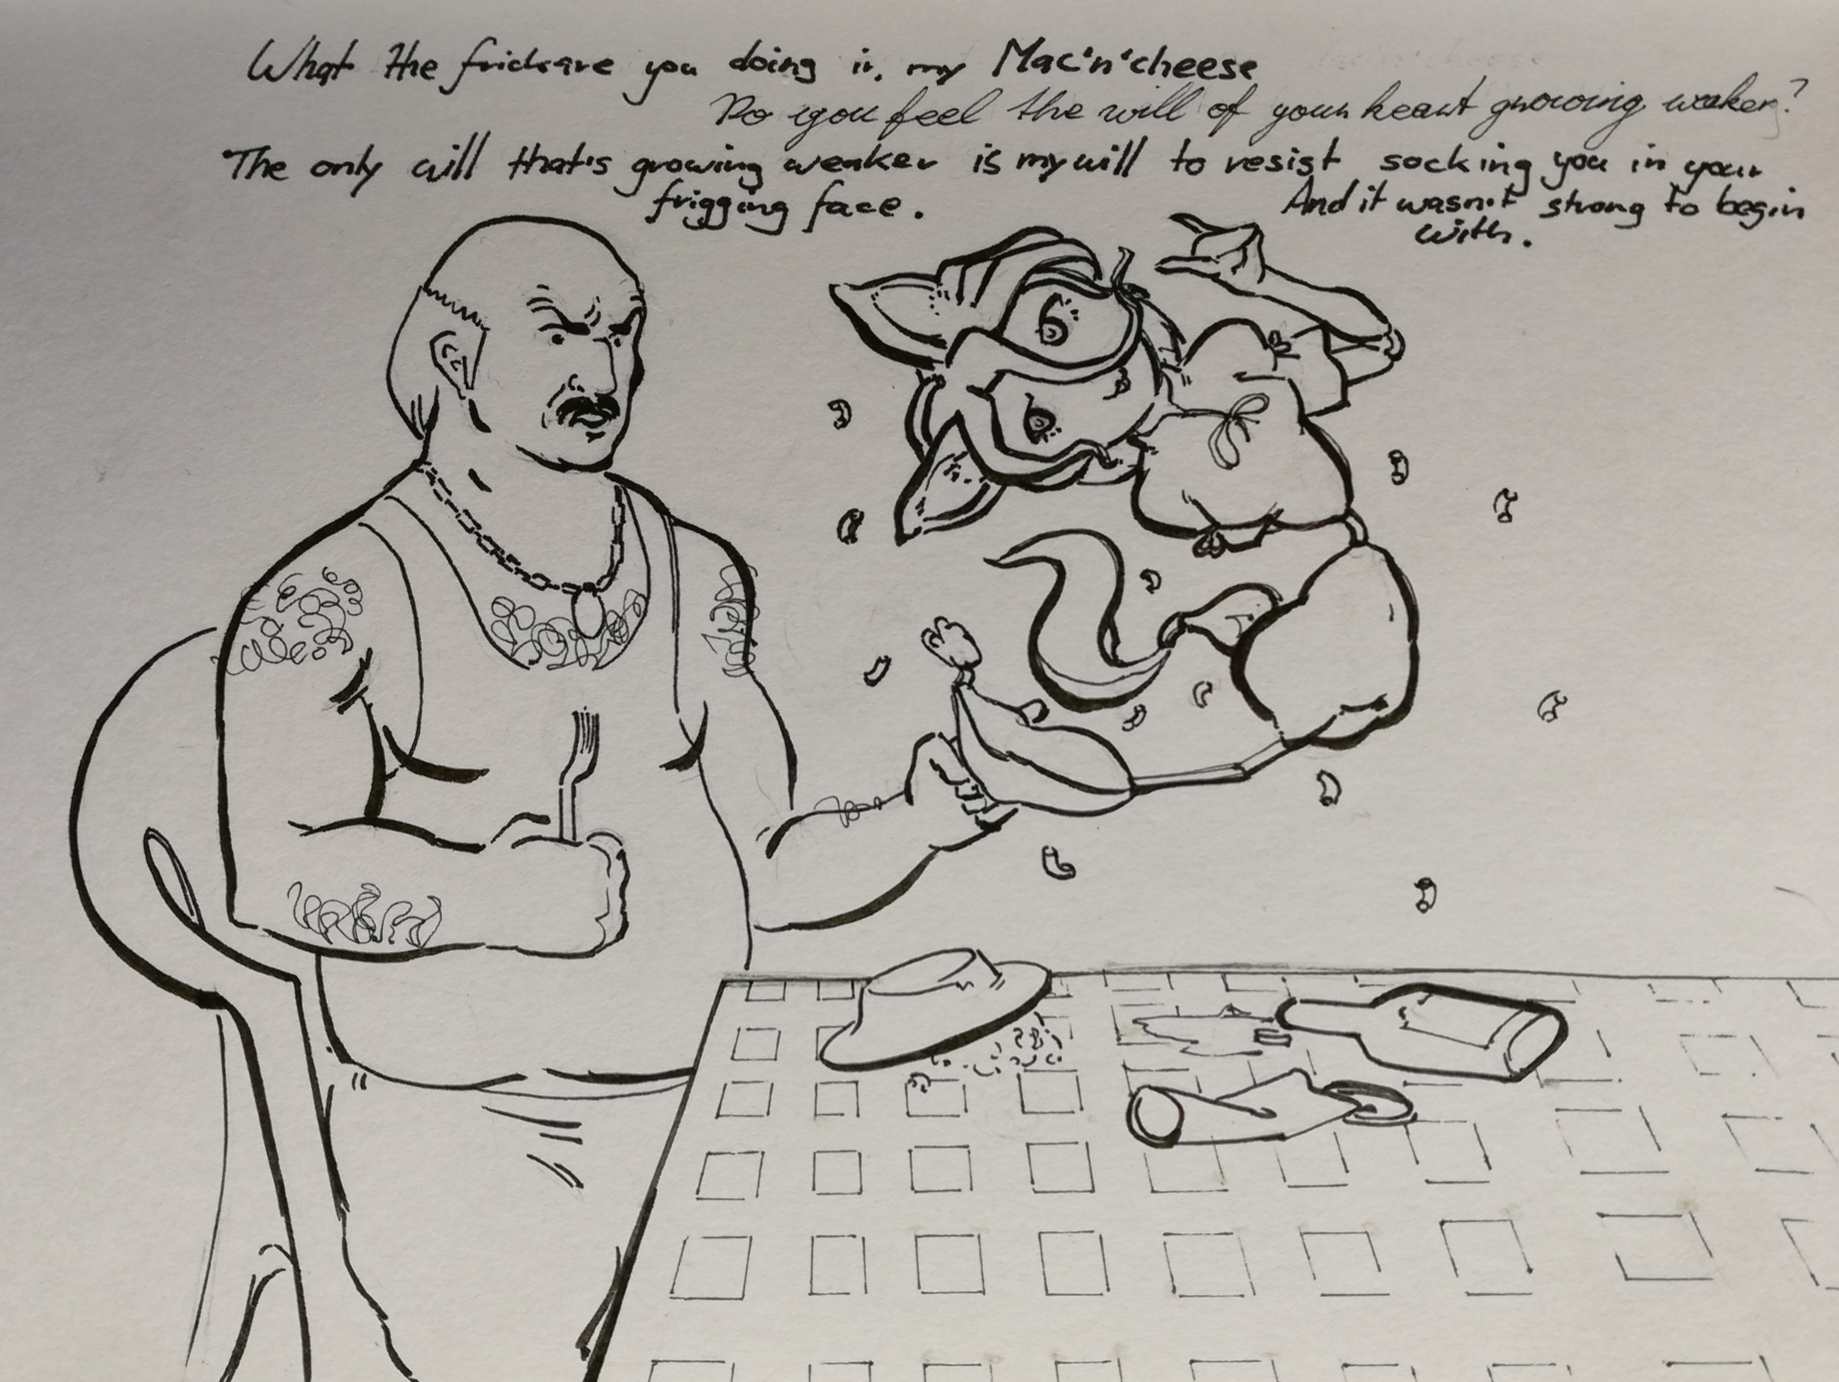 What the frick are you doing in my Mac'n'cheese
Do you feel the will of your heart growing weaker?
The only will that's growing weaker is my will to resist socking you in your
frigging face.
And it wasn't strong to begin
with.